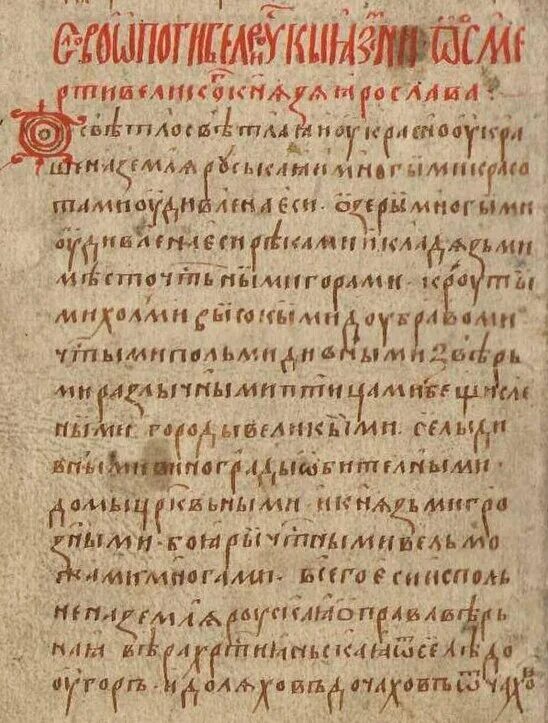 Слово ѿ погибели рꙋскыꙗ земли ѿ смє
рти великоⷢ кнѧзѧ ꙗрослава :
Ѻ свѣтло свѣтлаꙗ и оукрасно оукра
шена землѧ роуськаꙗ и многыми красо
тами оудивлена еси · ѡзеры многыми
оудивлена еси рѣками и кладѧзьми
мѣсточтьными горами · кроуты
ми холми высокыми доубравоми
чⷭтыми польми дивными звѣрь
ми разлычными птицами бещисле
ными · городы великыми · селы ди
вными винограды ѡбителными ·
домы црⷪковьными · и кнѧзьми гро
зными · боꙗры чⷭтными вельмо
жами многами · всего еси исполь
нена землѧ роускаꙗ ѡ правовѣрь
наꙗ вѣра хрⷭтиꙗньскаꙗ ѿселѣ до
оугоръ · и до лѧховъ до чаховъ ѿ чахо